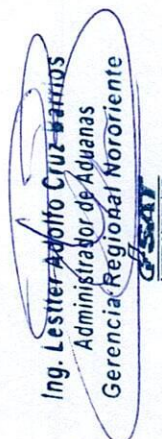 Ing. Lester Adolfo Cruz Barrios
Administrador de Aduanas
Gerencia Regional Nororiente
SAT